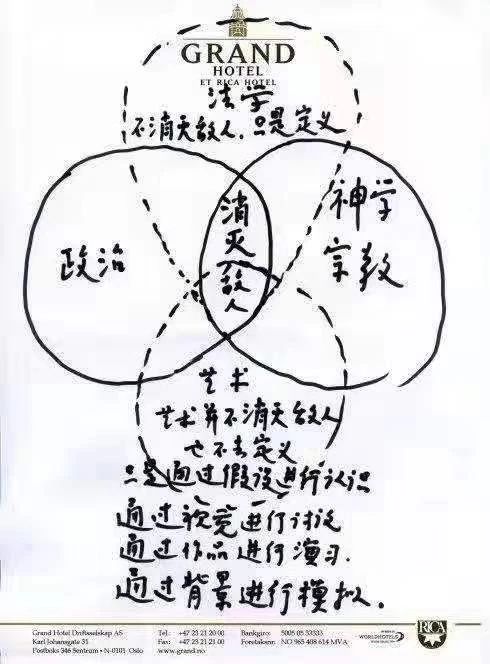 GRAND
HOTEL
ET RICA HOTEL
法学
不消灭敌人,只是定义
政治
消灭敌人
神学
宗教
艺术
艺术并不消灭敌人
也不去定义
只是通过假设进行认识
通过视觉进行讨论
通过作品进行演习.
通过背景进行模拟.
Grand Hotel Driftsselskap AS
Karl Johansgate 31
Postboks 346 Sentrum • N-0101 Oslo
Tel: +47 23 21 20 00
Fax: +47 23 21 21 00
www.grand.no
Bankgiro: 5005 05 53533
Foretaksnr: NO 965 488 614 MVA
WORLDHOTELS
RICA